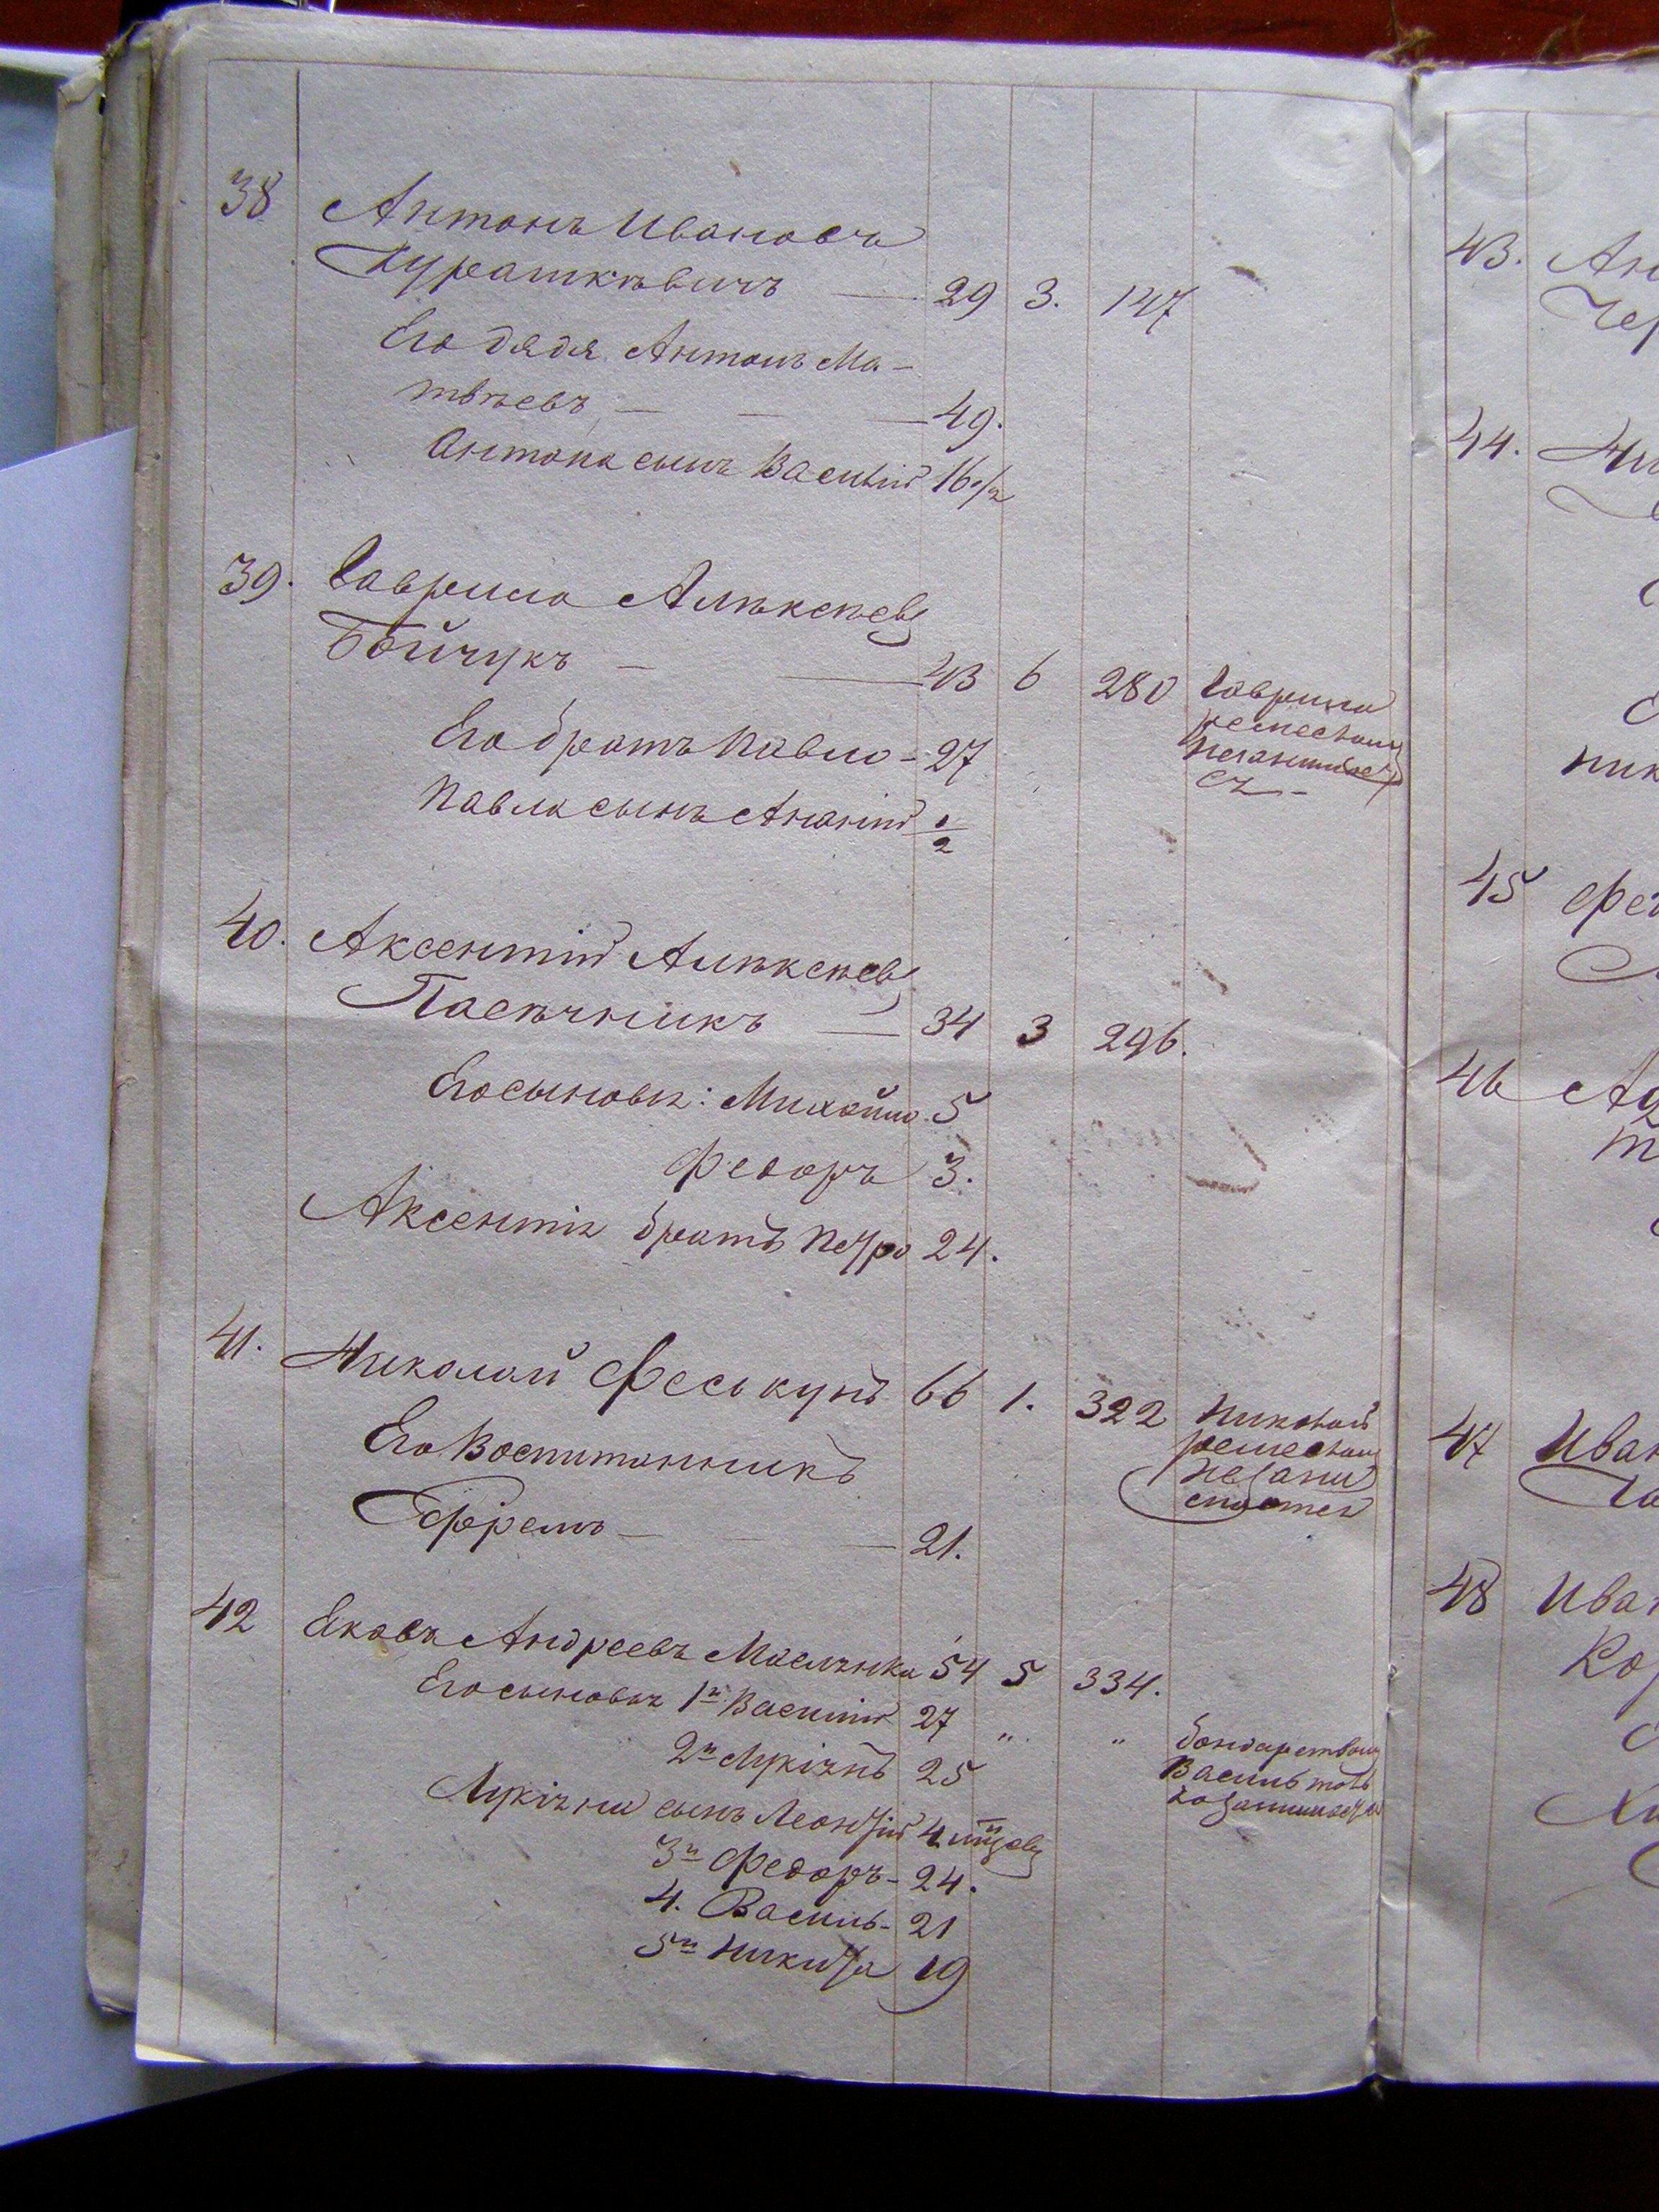 38 Антонъ Ивановъ
Курашкѣвичъ — 29 3. 147
Его дядя Антонъ Ма-
твѣевъ — — — 49.
Антона сынъ Василій 16 1/2
39. Гаврило Алѣксѣевъ
Бойчукъ — — 43 6 280 Гаврило
ремесломъ
незанимает
ся -
Его братъ Павло - 27
Павла сынъ Ананій 1/2
40. Аксентій Алѣксѣевъ
Пасѣчникъ — 34 3 296.
Его сыновя: Михайло 5
Федоръ 3.
Аксентія братъ Петро 24.
41. Николай Феськунъ 66 1. 322 Николай
ремесломъ
незани
мается
Его Воспитанникъ
Ефремъ — — — 21.
42 Яковъ Андреевъ Маслѣнка 54 5 334.
Его сыновья 1й Василій 27 " " бондарствомъ
Василь тотъ
занимается
2й Лукіянъ 25
Лукіяна сынъ Леонтій 4
3й Федоръ - 24.
4. Василь - 21
5й Никита 19
43. Ан
Чер
44. Ни
ник
45 Фе
46 Ад
47 Иван
48 Иван
Кор